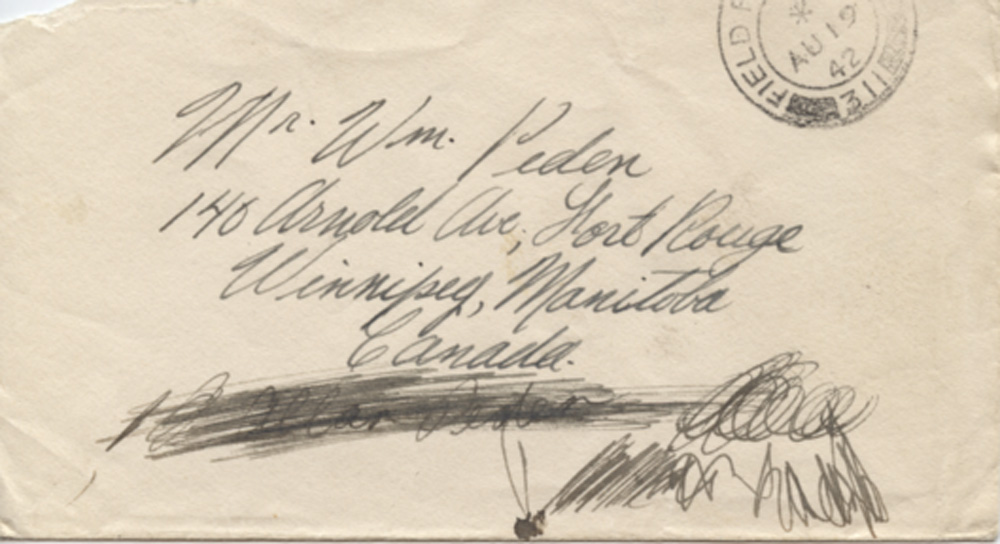 FIELD
AU 19
42
311
Mr. Wm. Peden
140 Arnold Ave, Fort Rouge
Winnipeg, Manitoba
Canada.
Peden